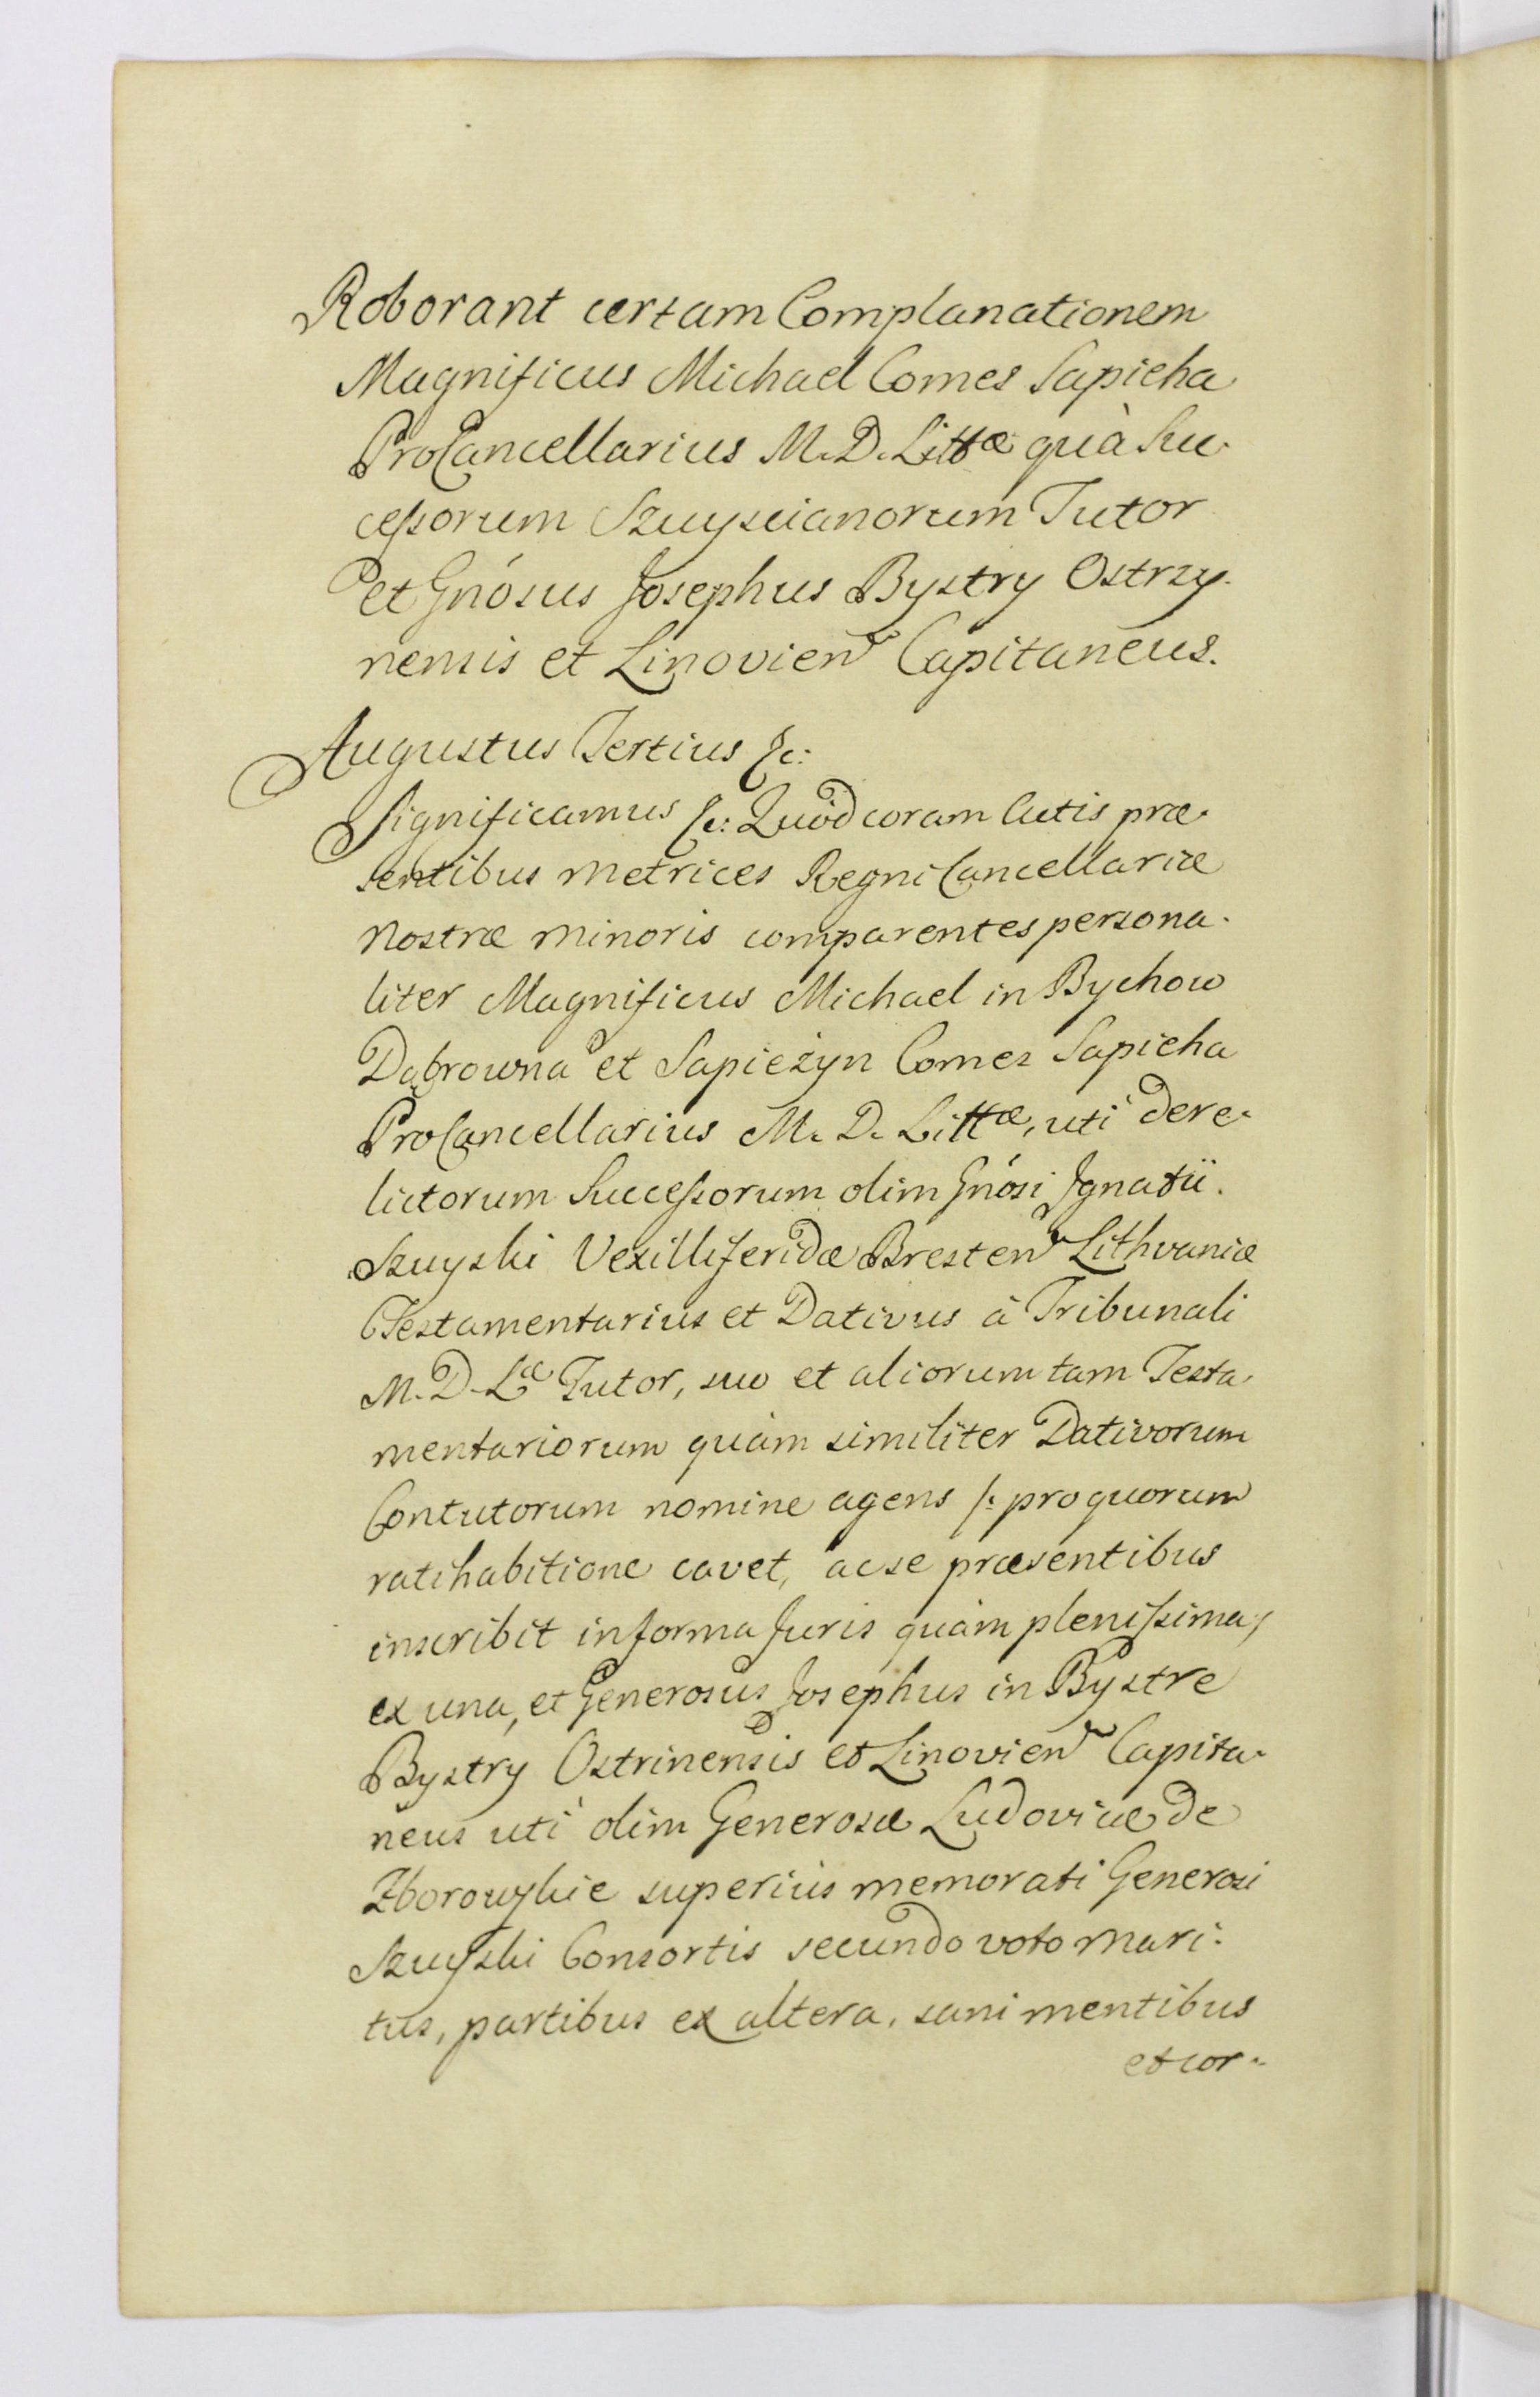 Roborant certam Complanationem
Magnificus Michael Comes Sapieha
ProCancellarius M. D. Littæ quà Suc-
cessorum Szuyscianorum Tutor
et Gnósus Josephus Bystry Ostrzy-
nensis et Linovien Capitaneus.
Augustus Tertius &c:
Significamus &c: Quòd coram Actis præ-
sentibus Metrices Regni Cancellariæ
Nostræ Minoris comparentes persona-
liter Magnificus Michael in Bychow
Dąbrowna et Sapieżyn Comes Sapieha
ProCancellarius M. D. Littæ, uti dere-
lictorum Successorum olim Gnósi Ignatii
Szuyski Vexilliferidæ Bresten Lithvaniæ
Testamentarius et Dativus à Tribunali
M. D. Læ Tutor, suo et aliorum tam Testa-
mentariorum quàm similiter Dativorum
Contutorum nomine agens /: pro quorum
ratihabitione cavet, ac se præsentibus
inscribit in forma Juris quàm plenissima :/
ex una, et Generosus Josephus in Bystre
Bystry Ostrinensis et Linovien Capita-
neus uti olim Generosæ Ludovicæ de
Zborowskie superius memorati Generosi
Szuyski Consortis secundo voto Mari-
tus, partibus ex altera, sani mentibus
et cor-